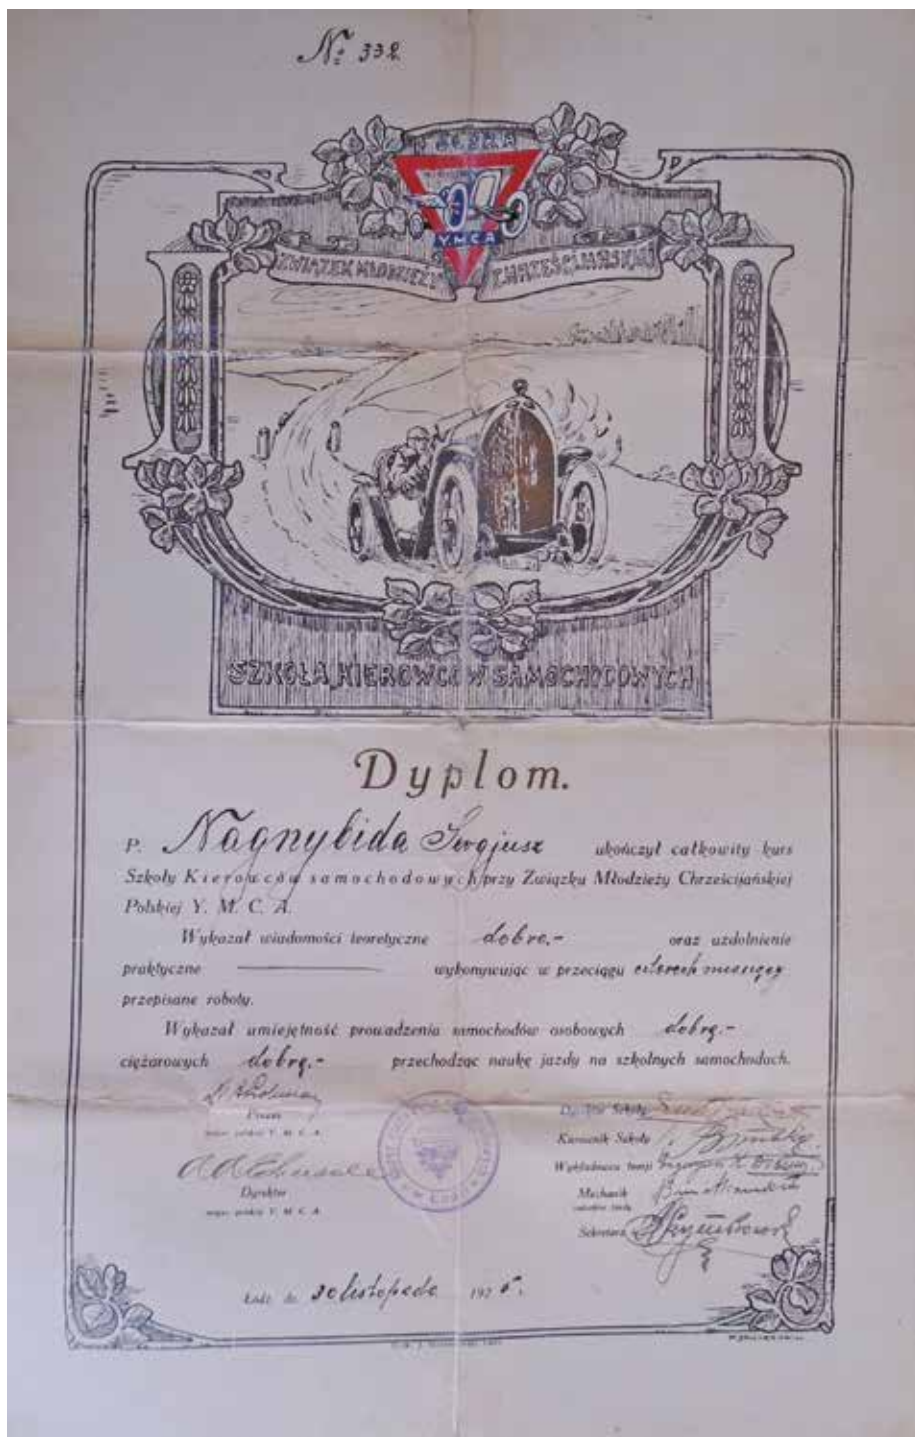 № 332
POLSKA
Y.M.C.A
ZWIĄZEK MŁODZIEŻY CHRZEŚCIJAŃSKIEJ
SZKOŁA KIEROWCÓW SAMOCHODOWYCH
Dyplom.
P. Nagnybida Sergjusz ukończył całkowity kurs
Szkoły Kierowców samochodowych przy Związku Młodzieży Chrześcijańskiej
Polskiej Y. M. C. A.
Wykazał wiadomości teoretyczne dobre.- oraz uzdolnienie
praktyczne wykonywując w przeciągu czterech miesięcy
przepisane roboty.
Wykazał umiejętność prowadzenia samochodów osobowych dobrą.-
ciężarowych dobrą.- przechodząc naukę jazdy na szkolnych samochodach.
Prezes
Y. M. C. A.
Dyrektor
Y. M. C. A.
Dyrektor Szkoły
Kierownik Szkoły
Wykładowca teorji
Mechanik
Sekretarz
Łódź, dn. 30 listopada 1925.